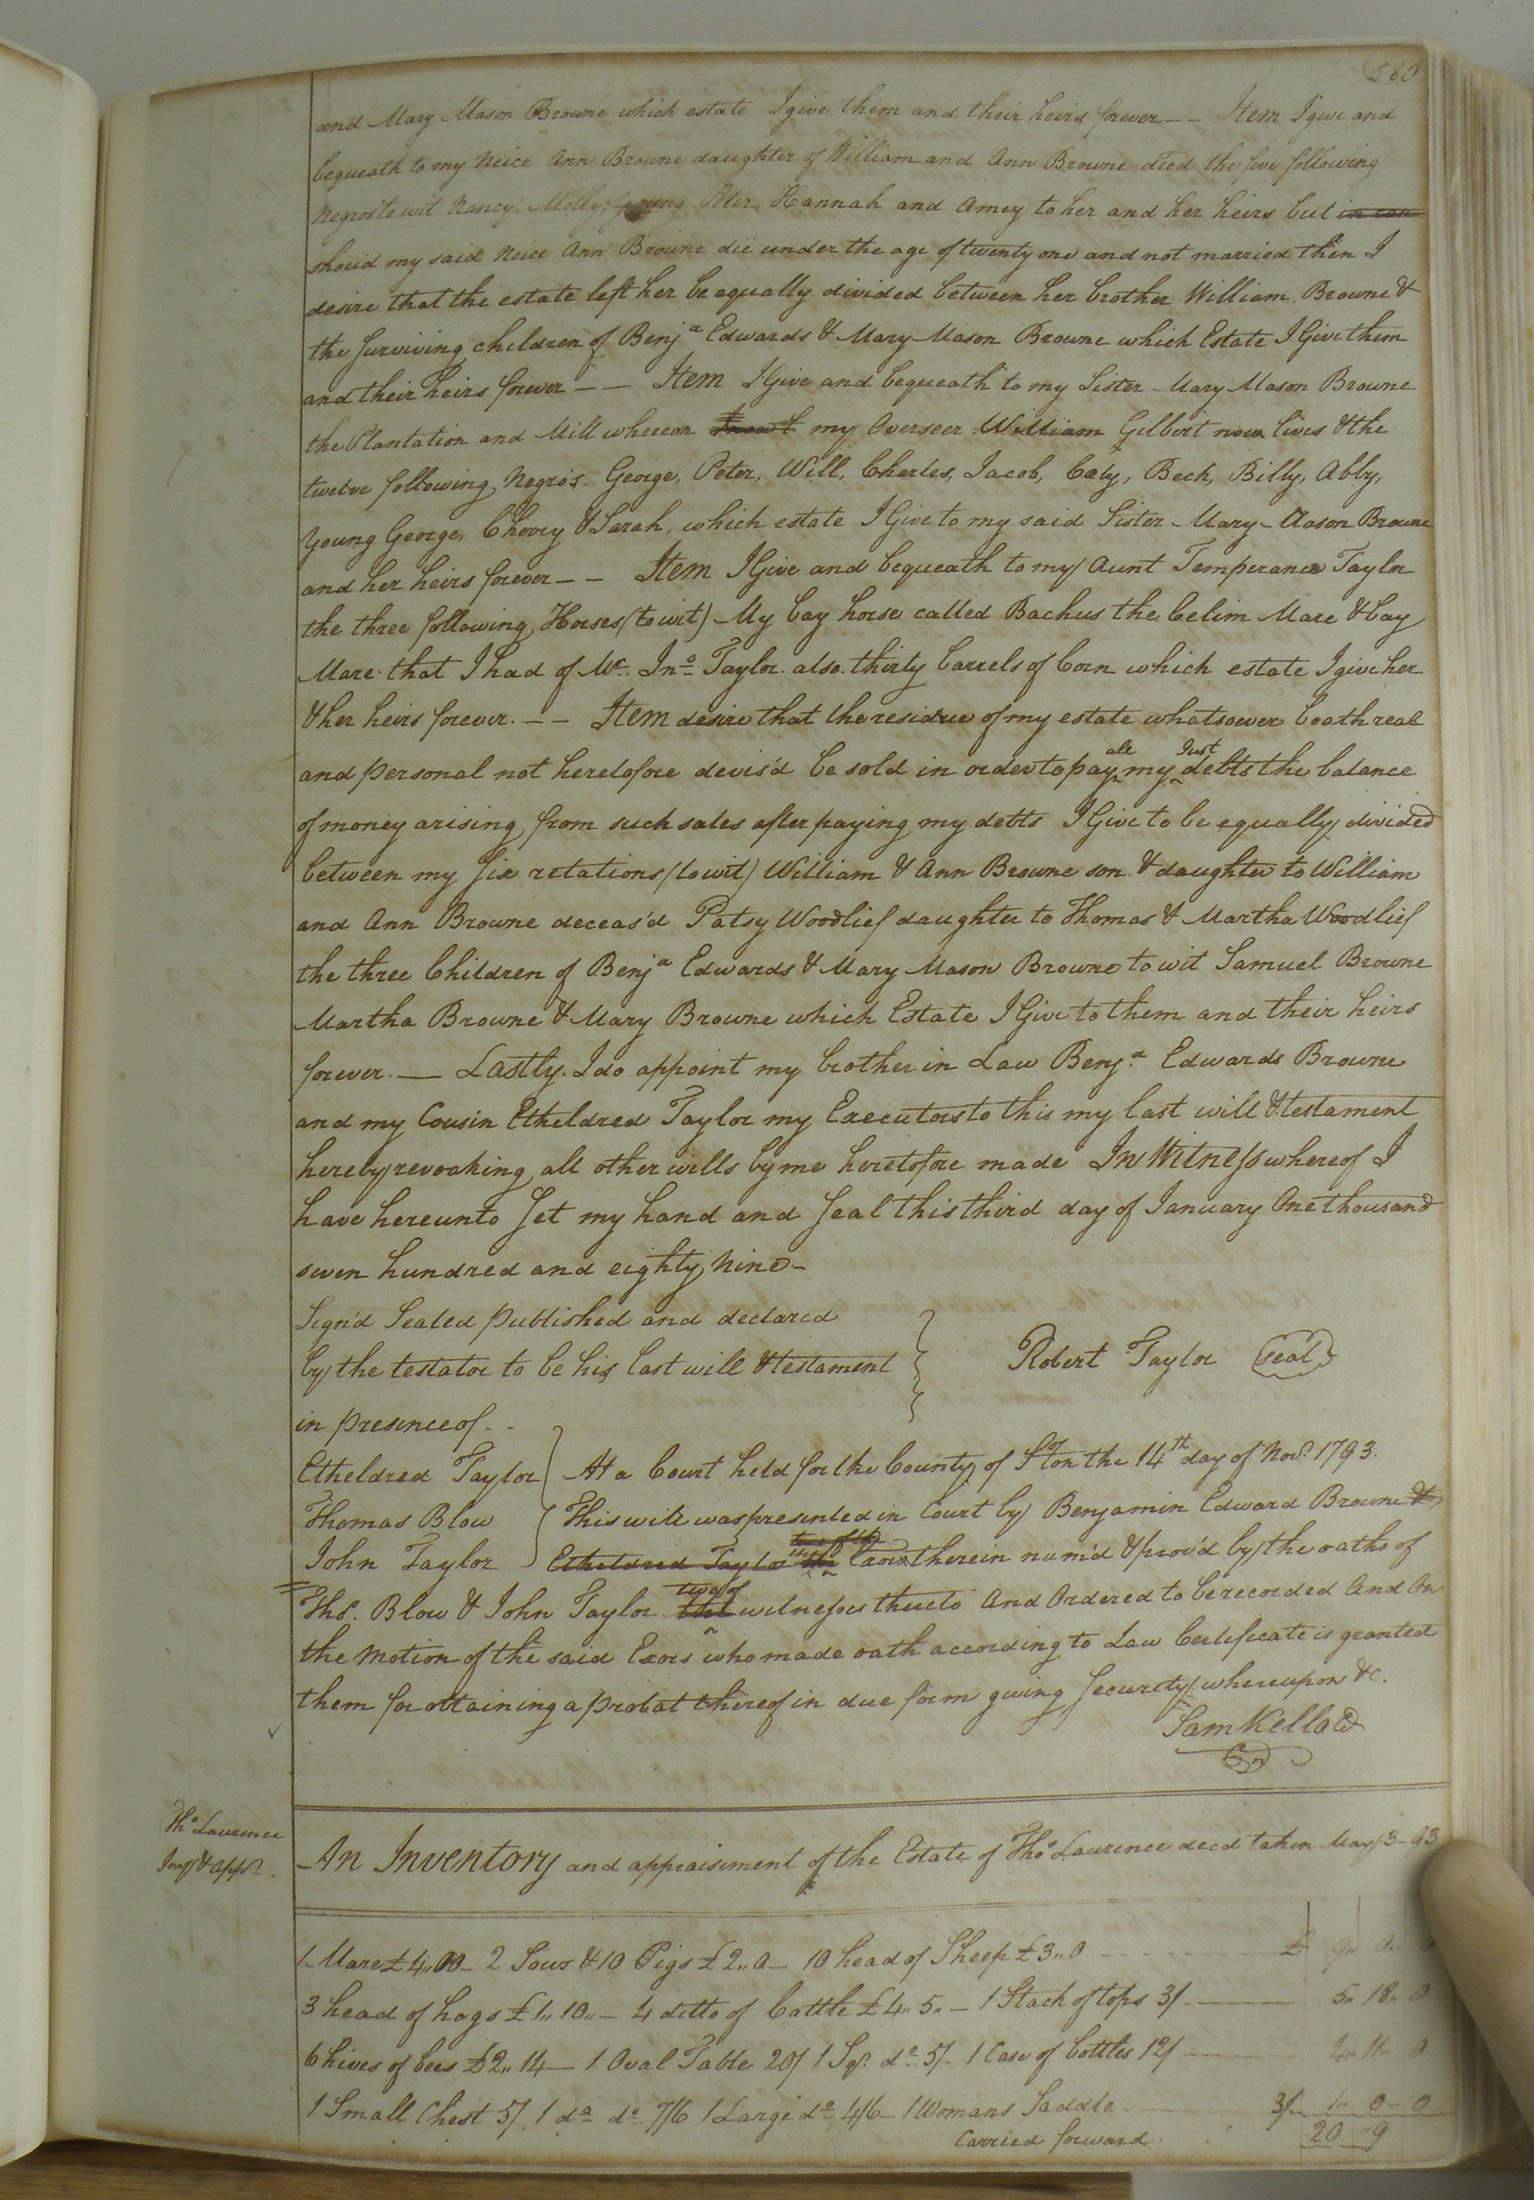 580
and Mary Mason Browne which estate I give them and their heirs forever -- Item I give and
bequeath to my Neice Ann Browne daughter of William and Ann Browne deced the five following
Negros to wit Nancy, Molly, young Peter, Hannah and Amey to her and her heirs but in case
shou'd my said Neice Ann Browne die under the age of twenty one and not married then I
desire that the estate left her be aqually divided between her brother William Browne &
the surviving children of Benja Edwards & Mary Mason Browne which Estate I Give them
and their heirs forever -- Item I Give and bequeath to my Sister Mary Mason Browne
the Plantation and Mill whereon my Overseer William Gilbert now lives & the
twelve following Negro's. George, Peter, Will, Charles, Jacob, Caty, Beck, Billy, Abby,
Young George, Cherry & Sarah, which estate I Give to my said Sister Mary Mason Browne
and her heirs forever -- Item I Give and bequeath to my Aunt Temperance Taylor
the three following Horses (to wit) My bay horse called Bachus the belim Mare & bay
Mare that I had of Mr. Jno Taylor also thirty barrels of Corn which estate I give her
& her heirs forever. -- Item desire that the residue of my estate whatsoever boath real
and personal not heretofore devis'd be sold in order to pay all my Just debts the balance
of money arising from such sales after paying my debts I Give to be equally divided
between my six relations (to wit) William & Ann Browne son & daughter to William
and Ann Browne deceas'd Patsy Woodlief daughter to Thomas & Martha Woodlief
the three Children of Benja Edwards & Mary Mason Browne to wit Samuel Browne
Martha Browne & Mary Browne which Estate I Give to them and their heirs
forever. — Lastly. I do appoint my brother in Law Benja Edwards Browne
and my Cousin Etheldred Taylor my Executors to this my last will & testament
hereby revoaking all other wills by me heretofore made In Witness whereof I
have hereunto set my hand and seal this third day of January One thousand
seven hundred and eighty Nine -
Sign'd Sealed published and declared
by the testator to be his last will & testament
Robert Taylor (seal)
in presence of --
Etheldred Taylor
Thomas Blow
John Taylor
At a Court held for the County of Soton the 14th day of Novr. 1793.
This will was presented in Court by Benjamin Edward Browne &
Etheldred Taylor the Exors therein nam'd & prov'd by the oaths of
Ths. Blow & John Taylor two of the witnesses thereto And Ordered to be recorded And On
the Motion of the said Exors who made oath according to Law Certificate is granted
them for obtaining a probat thereof in due form giving security whereupon &c.
Sam Kello CC
Tho Laurence
Invy & appt.
An Inventory and appraisement of the Estate of Tho Laurence decd taken May 3 - 93
1 Mare £4,,00 - 2 Sows & 10 Pigs £2,,0 - 10 head of Sheep £3,,0 £ 9,, 0,, 0
3 head of hogs £1,,10,, - 4 ditto of Cattle £4,,5,, - 1 Stack of tops 3/ 5,, 18,, 0
6 hives of bees £2,,14 - 1 Oval Table 20/ 1 Sqr. do 5/. 1 Case of bottles 12/ 4,, 11,, 0
1 Small Chest 5/. 1 do do 7/6 1 Large do 4/6 - 1 Womans Saddle 3/. 1,, 0 - 0
Carried forward 20 ,, 9